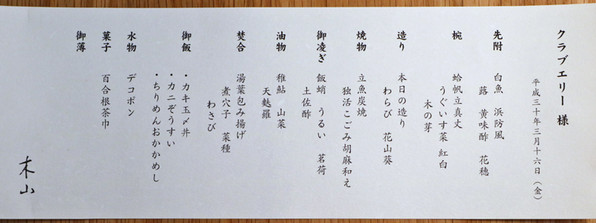 クラブエリー 様
平成三十年三月十六日（金）
先附 白魚 浜防風
蕗 黄味酢 花穂
椀 蛤帆立真丈
うぐいす菜 紅白
木の芽
造り 本日の造り
わらび 花山葵
焼物 立魚炭焼
独活こごみ胡麻和え
御凌ぎ 飯蛸 うるい 茗荷
土佐酢
油物 稚鮎 山菜
天麩羅
焚合 湯葉包み揚げ
煮穴子 菜種
わさび
御飯 ・カキ玉〆丼
・カニぞうすい
・ちりめんおかかめし
水物 デコポン
菓子 百合根茶巾
御薄
木山